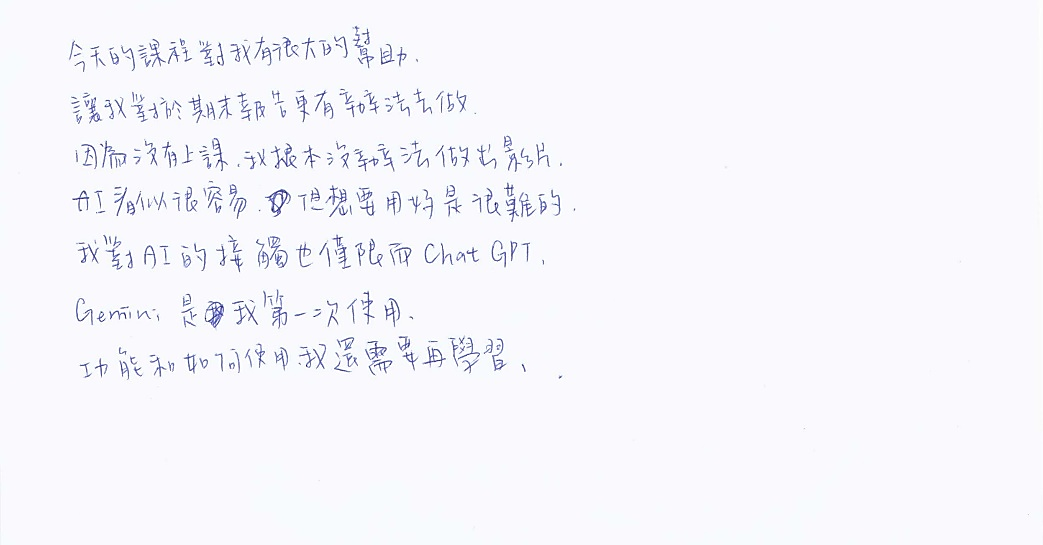 今天的課程對我有很大的幫助.
讓我對於期末報告更有辦法去做.
因為沒有上課.我根本沒辦法做出影片.
AI看似很容易.但想要用好是很難的.
我對AI的接觸也僅限而Chat GPT.
Gemini是我第一次使用.
功能和如何使用我還需要再學習.